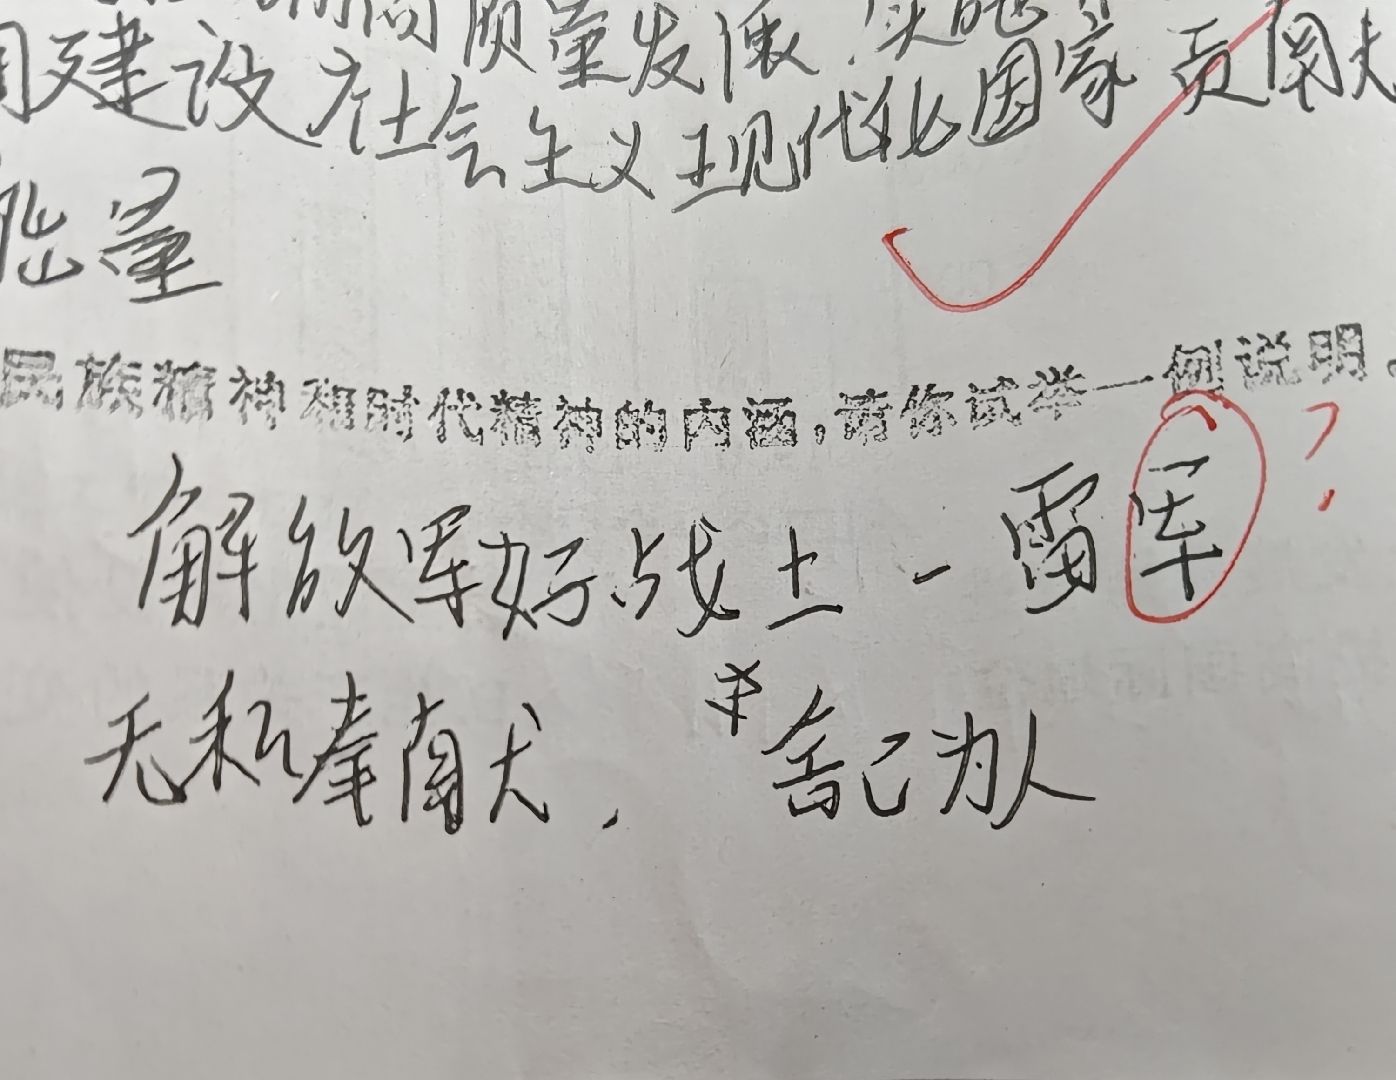 高质量发展,实
建设社会主义现代化国家贡献
能量
民族精神和时代精神的内涵,请你试举一例说明。
解放军好战士-雷军?
无私奉献, 舍己为人